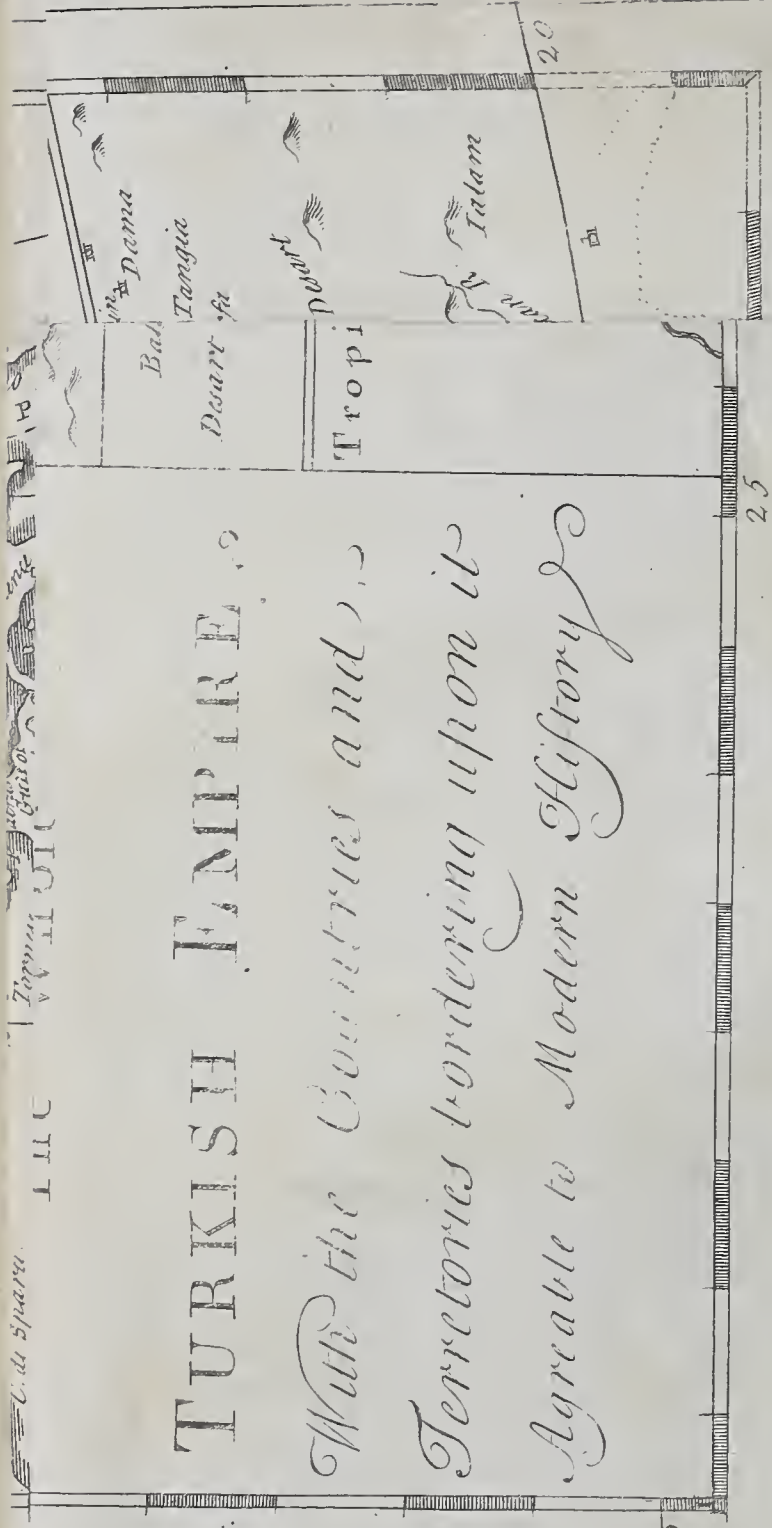 C. de Spara
The
TURKISH EMPIRE
With the Countries and
Terretories bordering upon it
Agreable to Modern Hiſtory
25
Tropi
Desart
Dama
Tangia
Desart
Ialam
20